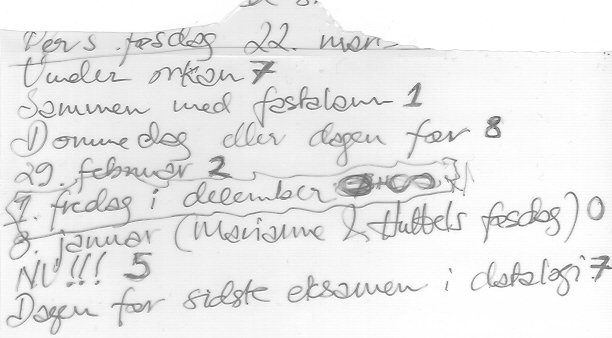 Pers føsdag 22. mar
Under orkan 7
Sammen med fastelavn 1
Dommedag eller dagen før 8
29. februar 2
1. fredag i december
8. januar (Marianne & Hubbels føsdag) 0
NU!!! 5
Dagen før sidste eksamen i datalogi 7